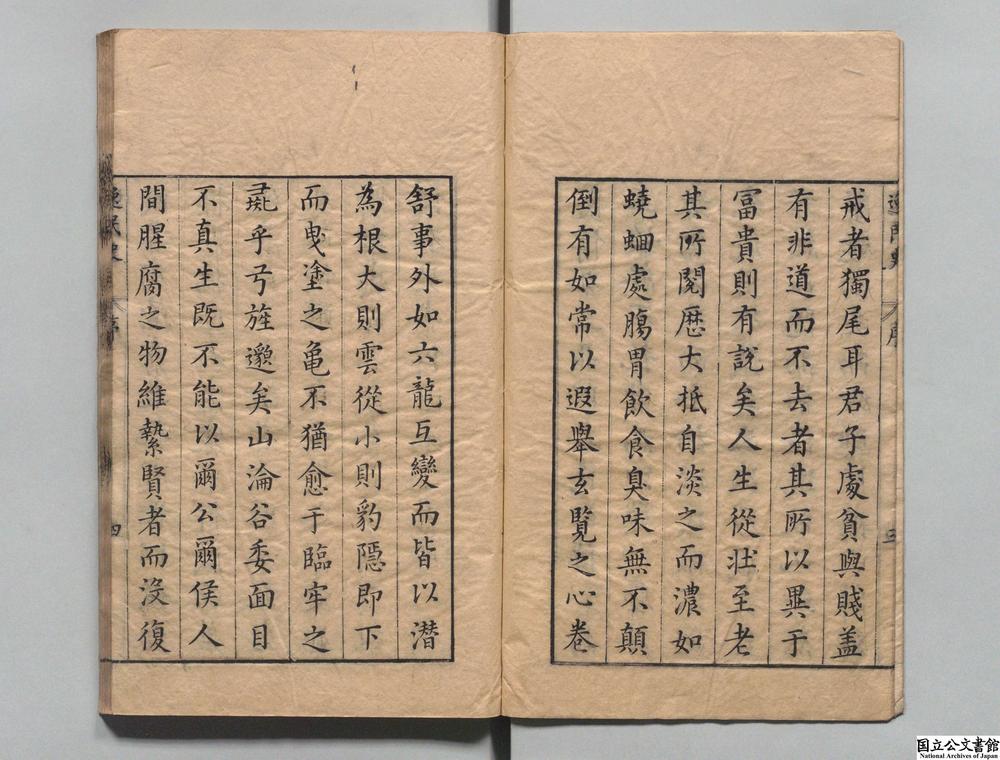 戒者獨尾耳君子處貧與賤盖
有非道而不去者其所以異于
冨貴則有說矣人生從壯至老
其所閱歷大抵自淡之而濃如
蟯蛔處膓胃飲食臭味無不顛
倒有如常以遐舉玄覽之心卷
三
舒事外如六龍互變而皆以潛
為根大則雲從小則豹隱即下
而曳塗之亀不猶愈于臨牢之
彘乎弓旌邈矣山淪谷委面目
不真生既不能以爾公爾侯人
間腥腐之物維縶賢者而没復
逸民史
序
四
国立公文書館
National Archives of Japan